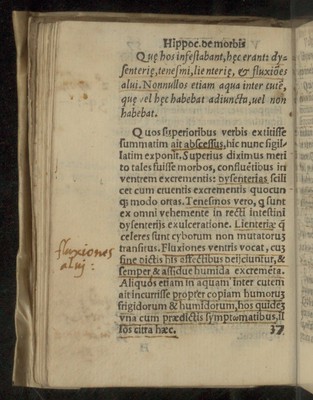 Hippoc. de morbis
Quę hos infestabant, hęc erant: dy-
senterię, tenesmi, lienterię, & fluxiões
alui. Nonnullos etiam aqua inter cutē,
quę vel hęc habebat adiunctu, uel non
habebat.
Quos superioribus verbis extitisse
summatim ait abscessus, hic nunc sigil-
latim exponit. Superius diximus meri
to tales fuisse morbos, confluētibus in
ventrem excrementis: Dysenterias scili
cet cum cruentis excrementis quocun
q; modo ortas. Tenesmos vero, q sunt
ex omni vehemente in recti intestini
dysenterijs exulceratione. Lienterię q
celeres sunt cyborum non mutatorũ
transitus. Fluxiones ventris vocat, cu
sine dictis his affectibus deijciuntur, &
semper & assidue humida excremēta.
Aliquos etiam in aquam inter cutem
ait incurrisse propter copiam humorũ
frigidorum & humidorum, hos quidẽ
vna cum prædictis symptomatibus, il
los citra hæc. 37
fluxiones
aluj: